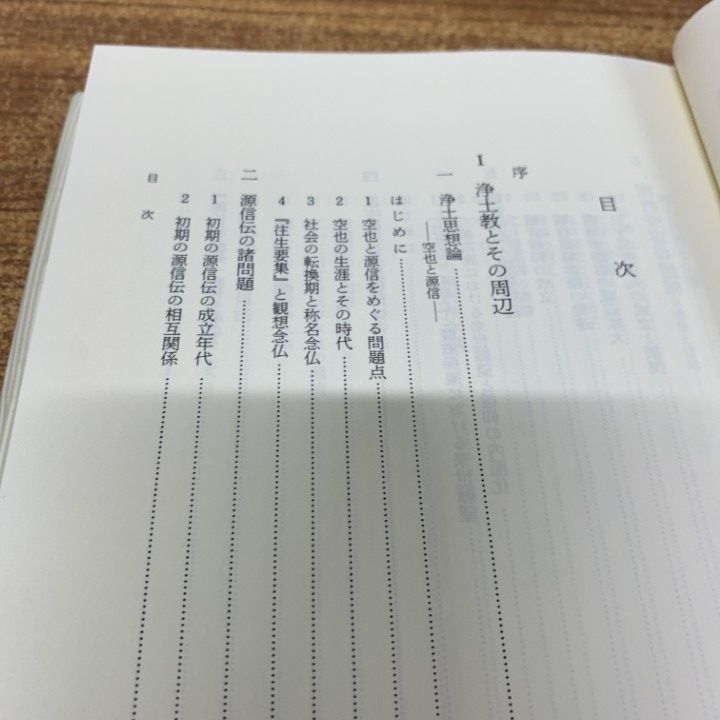 目次
序
I 浄土教とその周辺
一 浄土思想論
――空也と源信――
はじめに
1 空也と源信をめぐる問題点
2 空也の生涯とその時代
3 社会の転換期と称名念仏
4 『往生要集』と観想念仏
二 源信伝の諸問題
1 初期の源信伝の成立年代
2 初期の源信伝の相互関係
目次